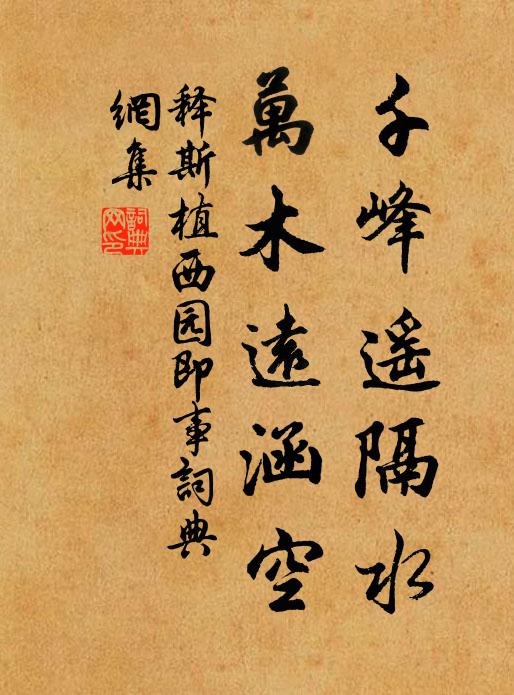 千峰遥隔水
萬木遠涵空
释斯植西园即事詞典
網集
詞典網印